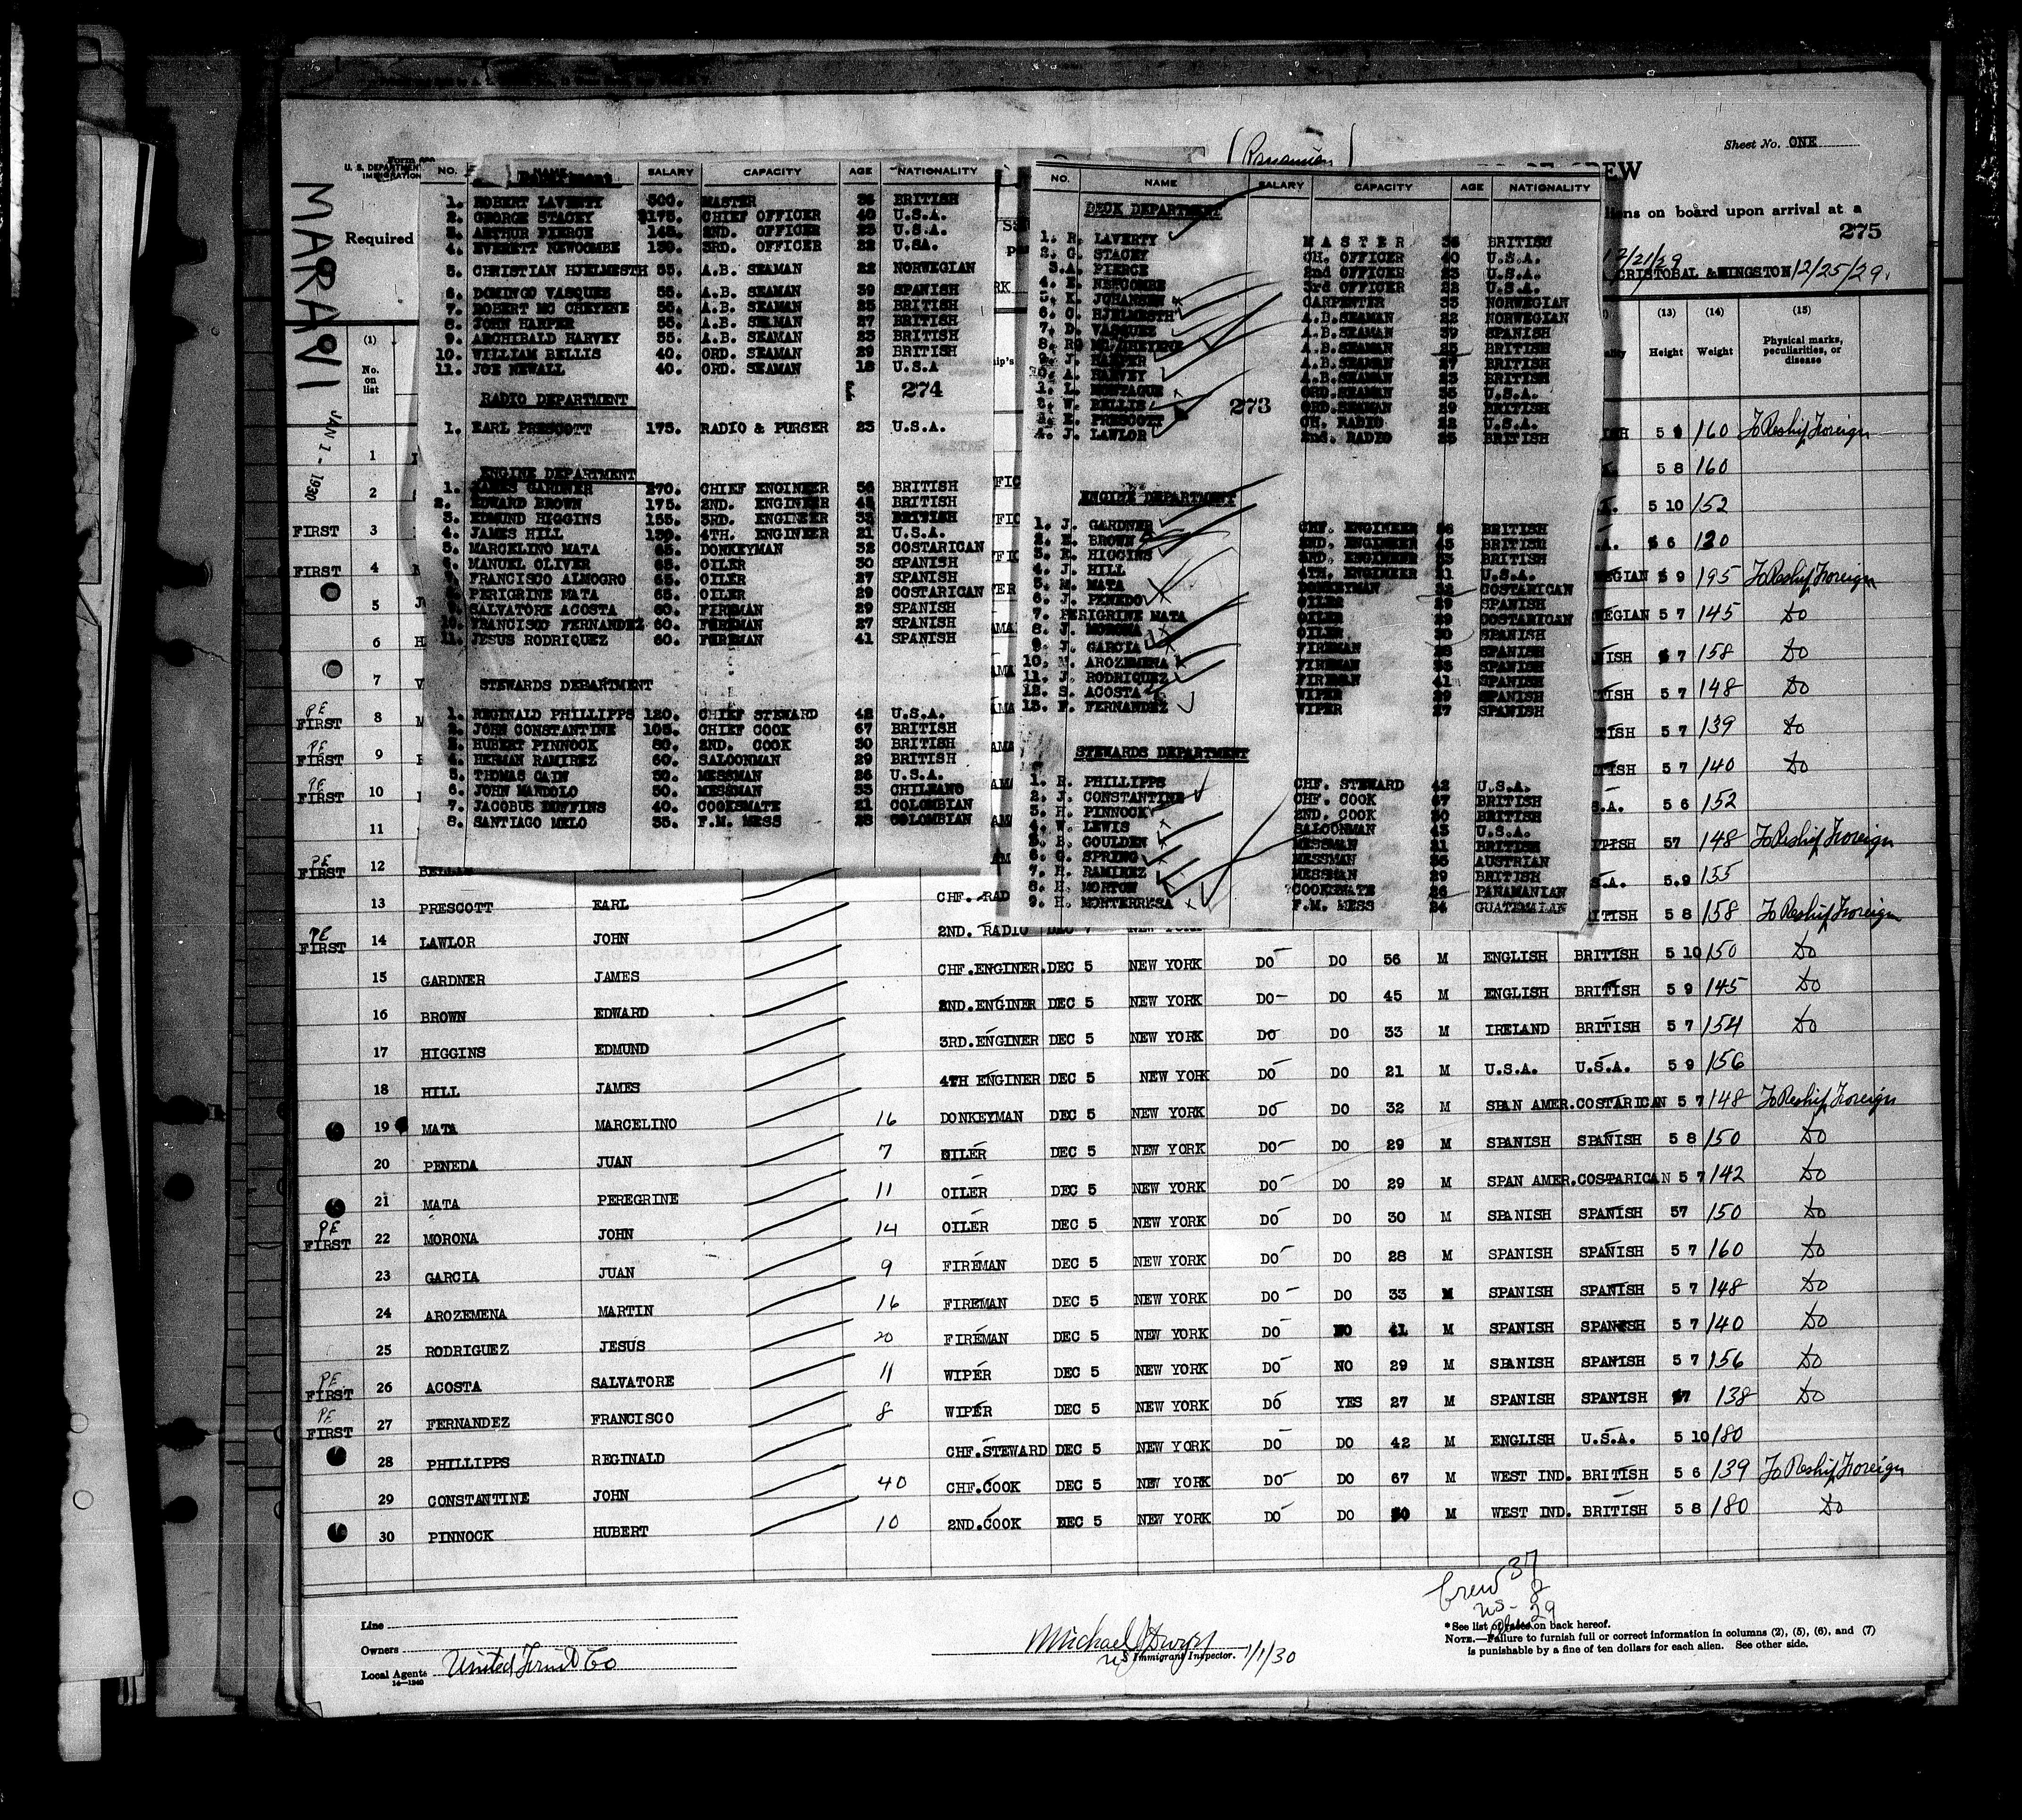 Sheet No. ONE
(Panamanian)
U. S. DEPARTMENT
IMMIGRATION
Required
EW
iens on board upon arrival at a
275
12/21/29
CRISTOBAL & KINGSTON 12/25/29.
MARAVI
JAN 1 - 1930
NO. NAME SALARY CAPACITY AGE NATIONALITY
1. ROBERT LAVERTY 300. MASTER 36 BRITISH
2. GEORGE STACEY $175. CHIEF OFFICER 40 U.S.A.
3. ARTHUR PIERCE 145. 2ND. OFFICER 23 U.S.A.
4. EVERETT NEWCOMBE 130. 3RD. OFFICER 22 U.SA.
5. CHRISTIAN HJELMESTH 55. A.B. SEAMAN 22 NORWEGIAN
6. DOMINGO VASQUEZ 55. A.B. SEAMAN 39 SPANISH
7. ROBERT MC CHEYENE 55. A.B. SEAMAN 25 BRITISH
8. JOHN HARPER 55. A.B. SEAMAN 27 BRITISH
9. ARCHIBALD HARVEY 55. A.B. SEAMAN 23 BRITISH
10. WILLIAM BELLIS 40. ORD. SEAMAN 29 BRITISH
11. JOE NEWALL 40. ORD. SEAMAN 18 U.S.A
274
RADIO DEPARTMENT
1. EARL PRESCOTT 175. RADIO & PURSER 23 U.S.A.
ENGINE DEPARTMENT
1. JAMES GARDNER 270. CHIEF ENGINEER 56 BRITISH
2. EDWARD BROWN 175. 2ND. ENGINEER 45 BRITISH
3. EDMUND HIGGINS 155. 3RD. ENGINEER 33 BRITISH
4. JAMES HILL 130. 4TH. ENGINEER 21 U.S.A.
5. MARCELINO MATA 65. DONKEYMAN 32 COSTARICAN
6. MANUEL OLIVER 65. OILER 30 SPANISH
7. FRANCISCO ALMOGRO 65. OILER 27 SPANISH
8. PERIGRINE MATA 65. OILER 29 COSTARICAN
9. SALVATORE ACOSTA 60. FIREMAN 29 SPANISH
10. FRANCISCO FERNANDEZ 60. FIREMAN 27 SPANISH
11. JESUS RODRIQUEZ 60. FIREMAN 41 SPANISH
STEWARDS DEPARTMENT
1. REGINALD PHILLIPPS 120. CHIEF STEWARD 42 U.S.A.
2. JOHN CONSTANTINE 105. CHIEF COOK 67 BRITISH
3. HUBERT PINNOCK 80. 2ND. COOK 30 BRITISH
4. HERMAN RAMIREZ 60. SALOONMAN 29 BRITISH
5. THOMAS CAIN 50. MESSMAN 26 U.S.A.
6. JOHN MANDOLO 50. MESSMAN 33 CHILEANO
7. JACOBUS DUFFINS 40. COOKSMATE 21 COLOMBIAN
8. SANTIAGO MELO 35. F.M. MESS 28 COLOMBIAN
NO. NAME SALARY CAPACITY AGE NATIONALITY
DECK DEPARTMENT
1. R. LAVERTY MASTER 36 BRITISH
2. G. STACEY CH. OFFICER 40 U.S.A.
3.A. PIERCE 2nd OFFICER 23 U.S.A.
4. E. NEWCOMBE 3rd OFFICER 22 U.S.A.
5. K. JOHANSEN CARPENTER 33 NORWEGIAN
6. C. HJELMESTH A.B.SEAMAN 22 NORWEGIAN
7. D. VASQUEZ A.B.SEAMAN 39 SPANISH
8. R. MC CHEYENE A.B.SEAMAN 25 BRITISH
9. J. HARPER A.B.SEAMAN 27 BRITISH
A. HARVEY A.B.SEAMAN 23 BRITISH
L. MONTAGUE ORD.SEAMAN 35 U.S.A.
W. BELLIS 273 ORD.SEAMAN 29 BRITISH
E. PRESCOTT CH. RADIO 22 U.S.A.
J. LAWLOR 2nd. RADIO 25 BRITISH
ENGINE DEPARTMENT
1. J. GARDNER CHF. ENGINEER 56 BRITISH
2. E. BROWN 2ND. ENGINEER 45 BRITISH
3. E. HIGGINS 3RD. ENGINEER 33 BRITISH
4. J. HILL 4TH. ENGINEER 21 U.S.A.
5. M. MATA DONKEYMAN 32 COSTARICAN
6. J. PENEDO OILER 29 SPANISH
7. PERIGRINE MATA OILER 29 COSTARICAN
8. J. MORONA OILER 30 SPANISH
9. J. GARCIA FIREMAN 28 SPANISH
10. M. AROZEMENA FIREMAN 33 SPANISH
11. J. RODRIQUEZ FIREMAN 41 SPANISH
12. S. ACOSTA WIPER 29 SPANISH
13. F. FERNANDEZ WIPER 27 SPANISH
STEWARDS DEPARTMENT
1. R. PHILLIPPS CHF. STEWARD 42 U.S.A.
2. J. CONSTANTINE CHF. COOK 67 BRITISH
3. H. PINNOCK 2ND. COOK 30 BRITISH
4. W. LEWIS SALOONMAN 43 U.S.A.
5. B. GOULDEN MESSMAN 21 BRITISH
6. G. SPRING MESSMAN 36 AUSTRIAN
7. H. RAMIREZ MESSMAN 29 BRITISH
8. H. MORTON COOKSMATE 26 PANAMANIAN
9. H. MONTERRESA F.M. MESS 24 GUATEMALAN
(1) No. on list (13) Height (14) Weight (15) Physical marks, peculiarities, or disease
1 ISH 160 To Reship Foreign
2 5 8 160
FIRST 3 5 10 152
FIRST 4 5 6 120
5 WEGIAN 5 9 195 To Reship Foreign
6 WEGIAN 5 7 145 Do
7 ISH 5 7 158 Do
PE FIRST 8 TISH 5 7 148 Do
PE FIRST 9 TISH 5 7 139 Do
PE FIRST 10 TISH 5 7 140 Do
11 S.A. 5 6 152
PE FIRST 12 BELLIS TISH 57 148 To Reship Foreign
13 PRESCOTT EARL CHF. RAD S.A. 5.9 155
PE FIRST 14 LAWLOR JOHN 2ND. RADIO DEC 7 NEW YORK ITISH 5 8 158 To Reship Foreign
15 GARDNER JAMES CHF.ENGINER. DEC 5 NEW YORK DO DO 56 M ENGLISH BRITISH 5 10 150 Do
16 BROWN EDWARD 2ND.ENGINER DEC 5 NEW YORK DO DO 45 M ENGLISH BRITISH 5 9 145 Do
17 HIGGINS EDMUND 3RD.ENGINER DEC 5 NEW YORK DO DO 33 M IRELAND BRITISH 5 7 154 Do
18 HILL JAMES 4TH ENGINER DEC 5 NEW YORK DO DO 21 M U.S.A. U.S.A. 5 9 156
19 MATA MARCELINO 16 DONKEYMAN DEC 5 NEW YORK DO DO 32 M SPAN AMER. COSTARICAN 5 7 148 To Reship Foreign
20 PENEDA JUAN 7 OILER DEC 5 NEW YORK DO DO 29 M SPANISH SPANISH 5 8 150 Do
21 MATA PEREGRINE 11 OILER DEC 5 NEW YORK DO DO 29 M SPAN AMER. COSTARICAN 5 7 142 Do
PE FIRST 22 MORONA JOHN 14 OILER DEC 5 NEW YORK DO DO 30 M SPANISH SPANISH 57 150 Do
23 GARCIA JUAN 9 FIREMAN DEC 5 NEW YORK DO DO 28 M SPANISH SPANISH 5 7 160 Do
24 AROZEMENA MARTIN 16 FIREMAN DEC 5 NEW YORK DO DO 33 M SPANISH SPANISH 5 7 148 Do
25 RODRIGUEZ JESUS 20 FIREMAN DEC 5 NEW YORK DO NO 41 M SPANISH SPANISH 5 7 140 Do
PE FIRST 26 ACOSTA SALVATORE 11 WIPER DEC 5 NEW YORK DO NO 29 M SPANISH SPANISH 5 7 156 Do
PE FIRST 27 FERNANDEZ FRANCISCO 8 WIPER DEC 5 NEW YORK DO YES 27 M SPANISH SPANISH 57 138 Do
28 PHILLIPPS REGINALD CHF.STEWARD DEC 5 NEW YORK DO DO 42 M ENGLISH U.S.A. 5 10 180
29 CONSTANTINE JOHN 40 CHF.COOK DEC 5 NEW YORK DO DO 67 M WEST IND. BRITISH 5 6 139 To Reship Foreign
30 PINNOCK HUBERT 10 2ND.COOK DEC 5 NEW YORK DO DO 30 M WEST IND. BRITISH 5 8 180 Do
Crew 37
US - 8
29
Line
Owners
Local Agents United Fruit Co
14-1240
Michael
US Immigrant Inspector. 1/1/30
*See list of races on back hereof.
NOTE.—Failure to furnish full or correct information in columns (2), (5), (6), and (7)
is punishable by a fine of ten dollars for each alien. See other side.